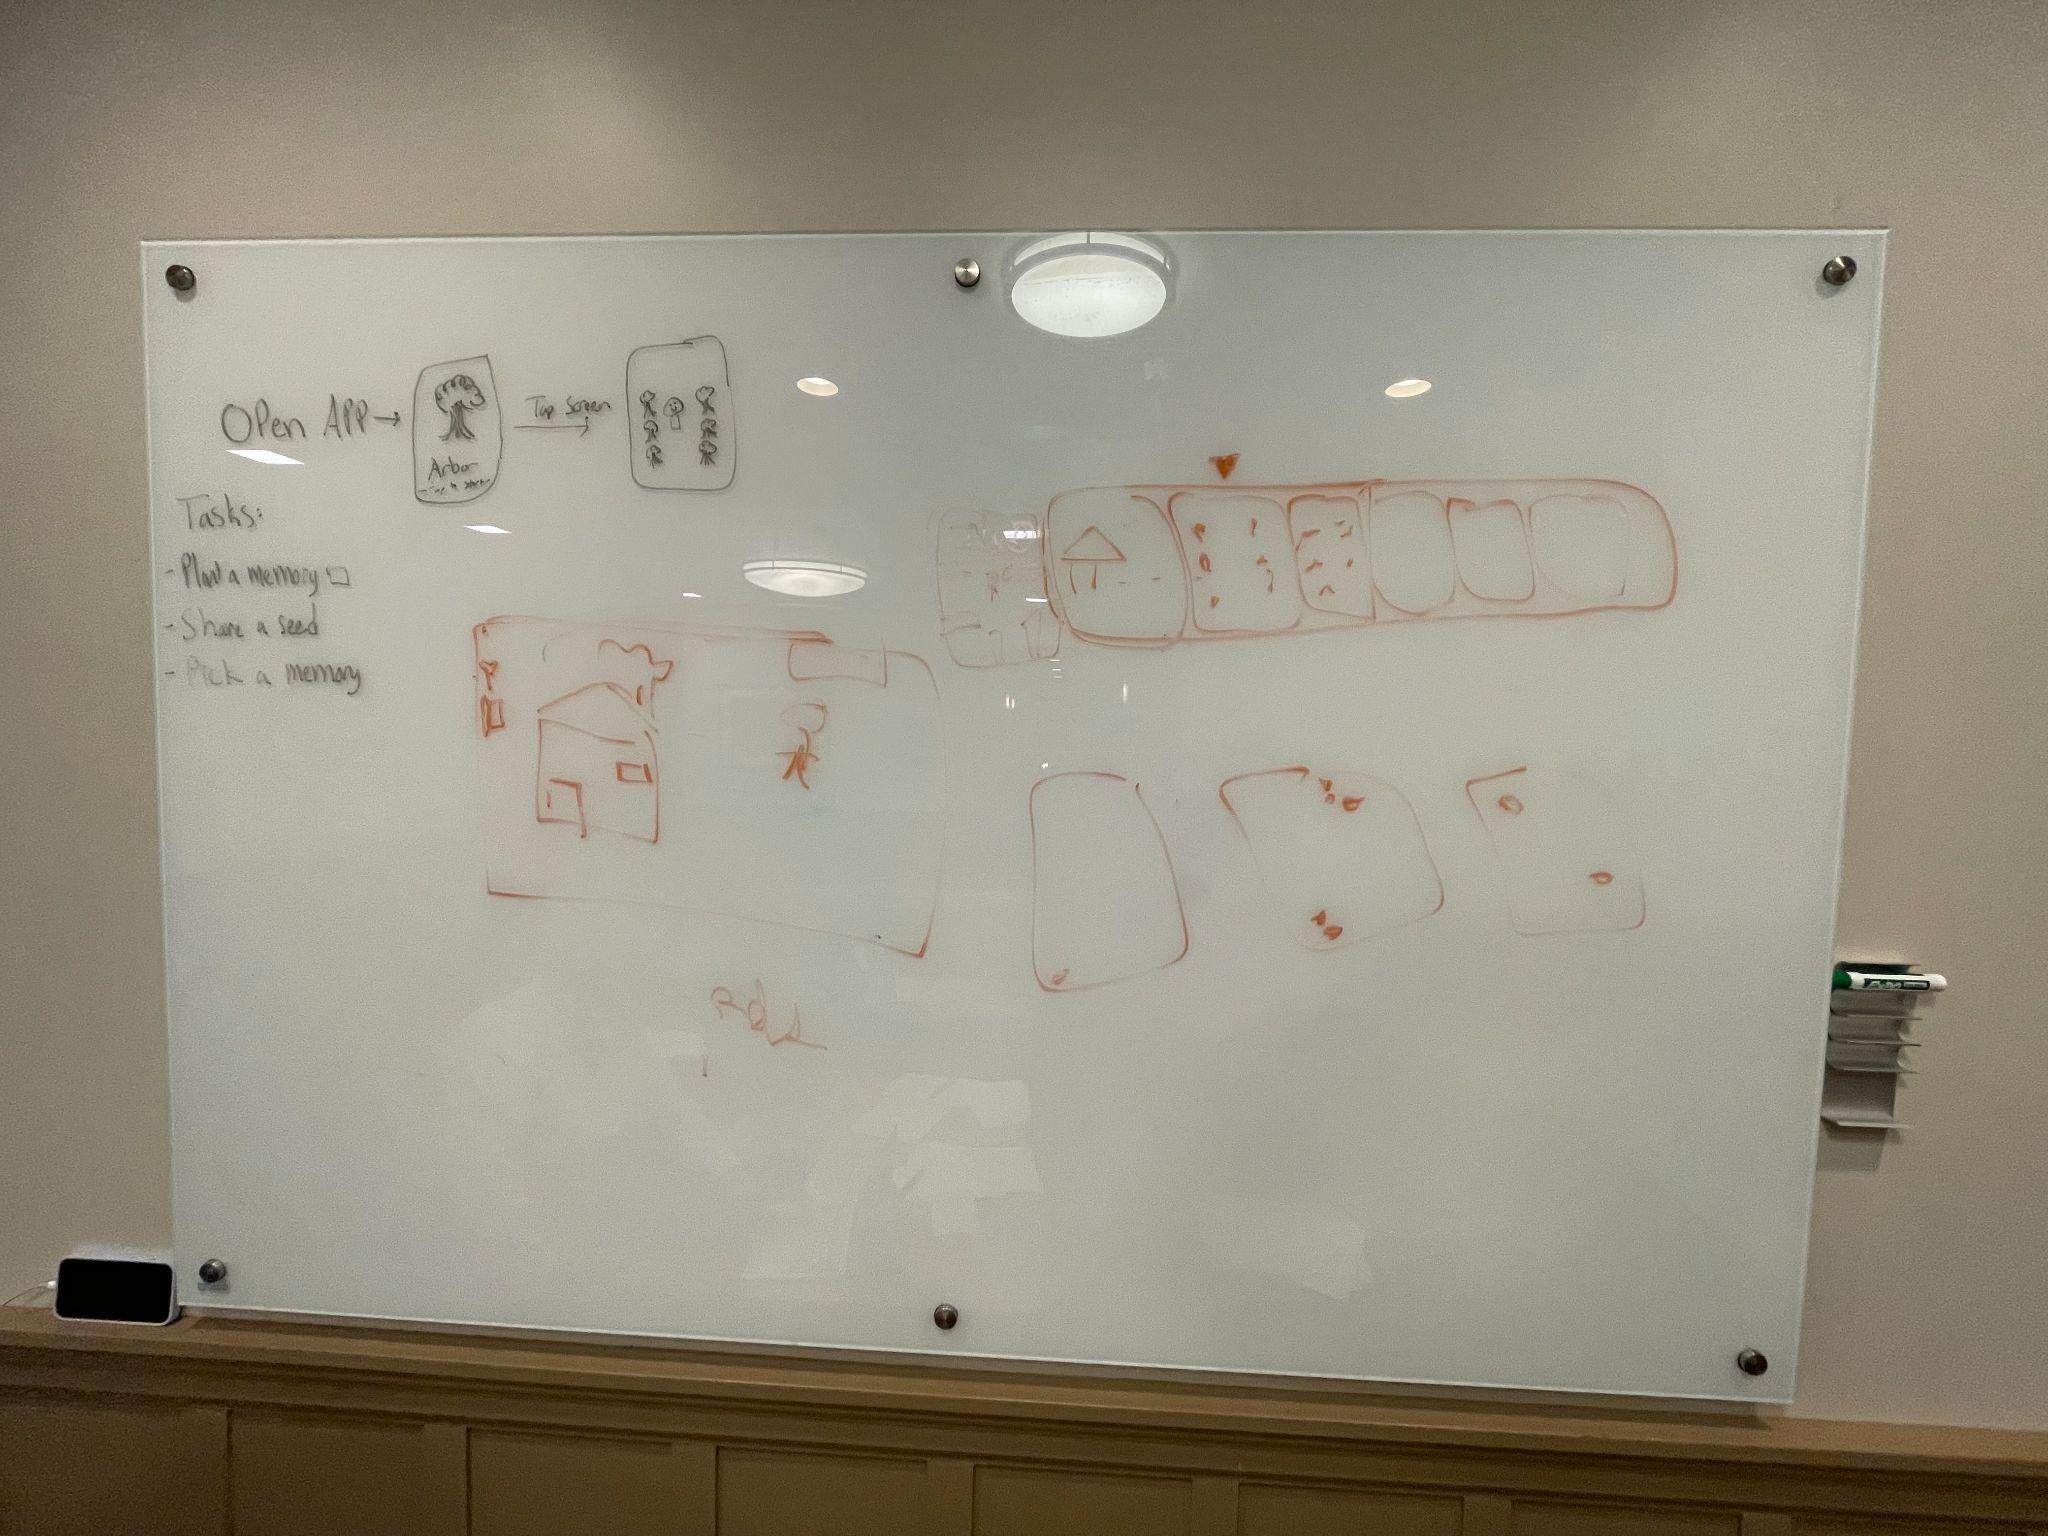 OPen APP
Arbor
Tap Screen
Tasks:
- Plant a memory
- Share a seed
- Pick a memory